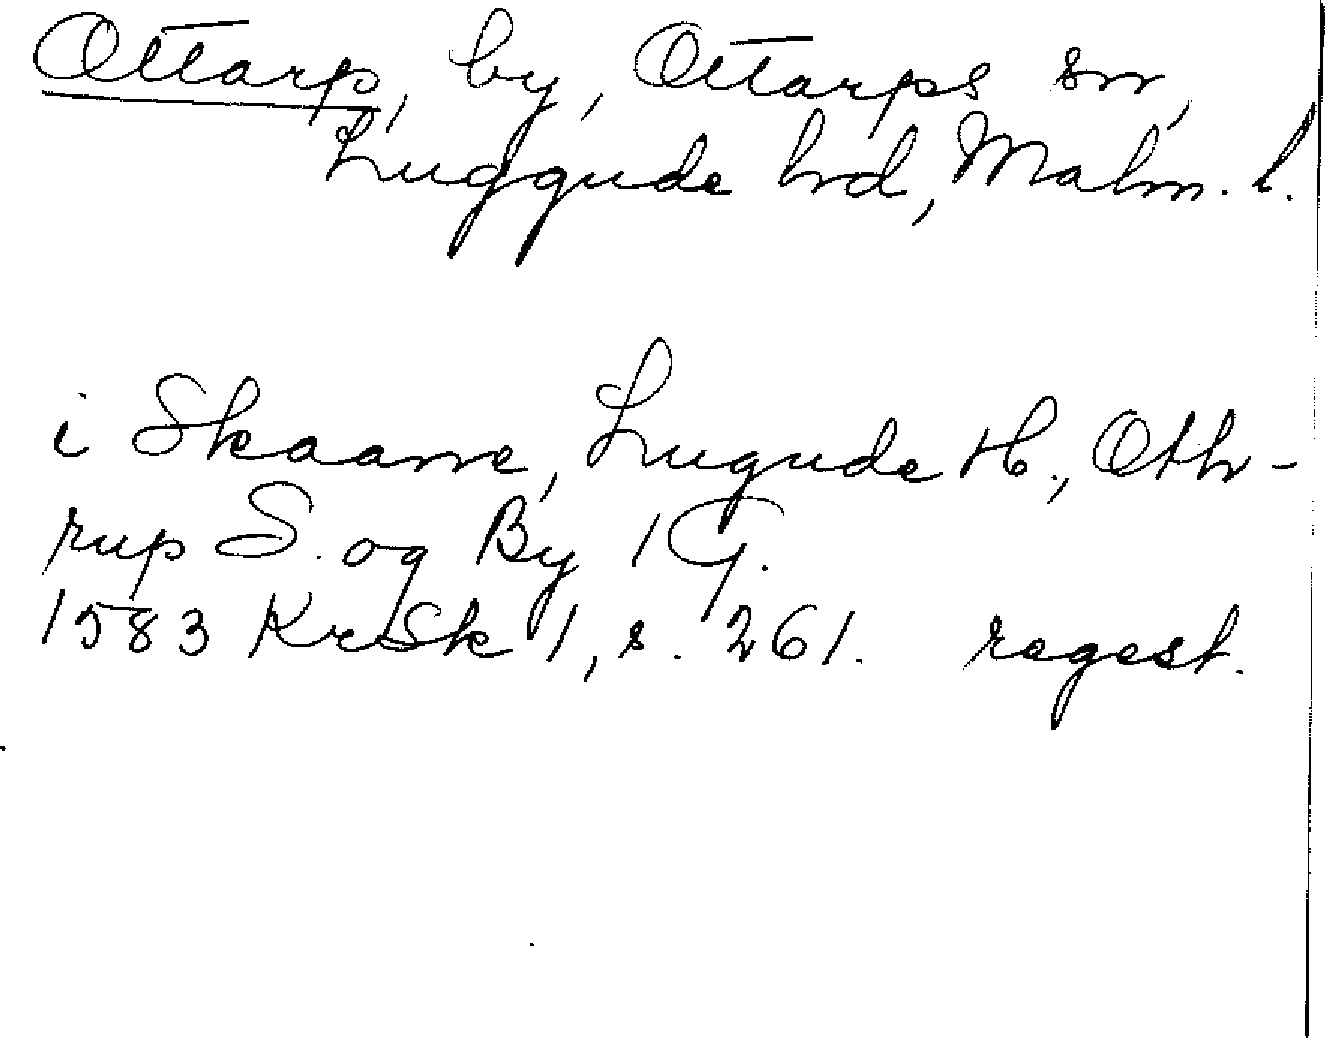 Ottarp, by, Ottarps sn,
Luggude hrd, Malm. l.
i Skaane, Lugude H., Oth-
rup S. og By 1 G.
1583 KrSk 1, s. 261. regest.